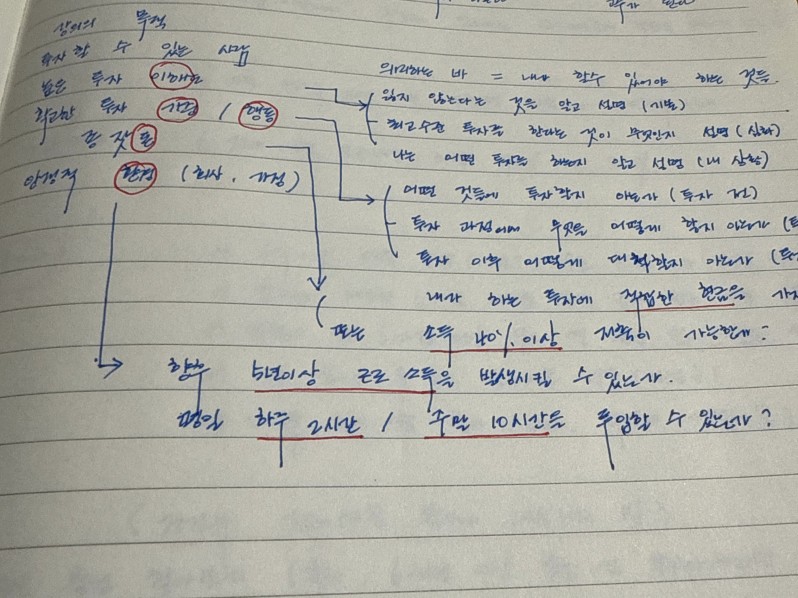 강의의 목적
투자할 수 있는 사람
높은 투자 이해도
확고한 투자 기준 / 행동
종잣돈
안정적 환경 (회사, 가정)
의미하는 바 = 내가 할 수 있어야 하는 것들.
잃지 않는다는 것을 알고 설명 (기본)
최고수준 투자를 한다는 것이 무엇인지 설명 (심화)
나는 어떤 투자를 해야 알고 설명 (내 상황)
어떤 것들에 투자할지 아는가 (투자 전)
투자 과정에서 무엇을 어떻게 할지 아는가
투자 이후 어떻게 대책할지 아는가
내가 하는 투자에 적합한 현금을
또는 소득 40% 이상 저축이 가능한가?
향후 5년이상 근로소득을 발생시킬 수 있는가.
평일 하루 2시간 / 주말 10시간을 투입할 수 있는가?